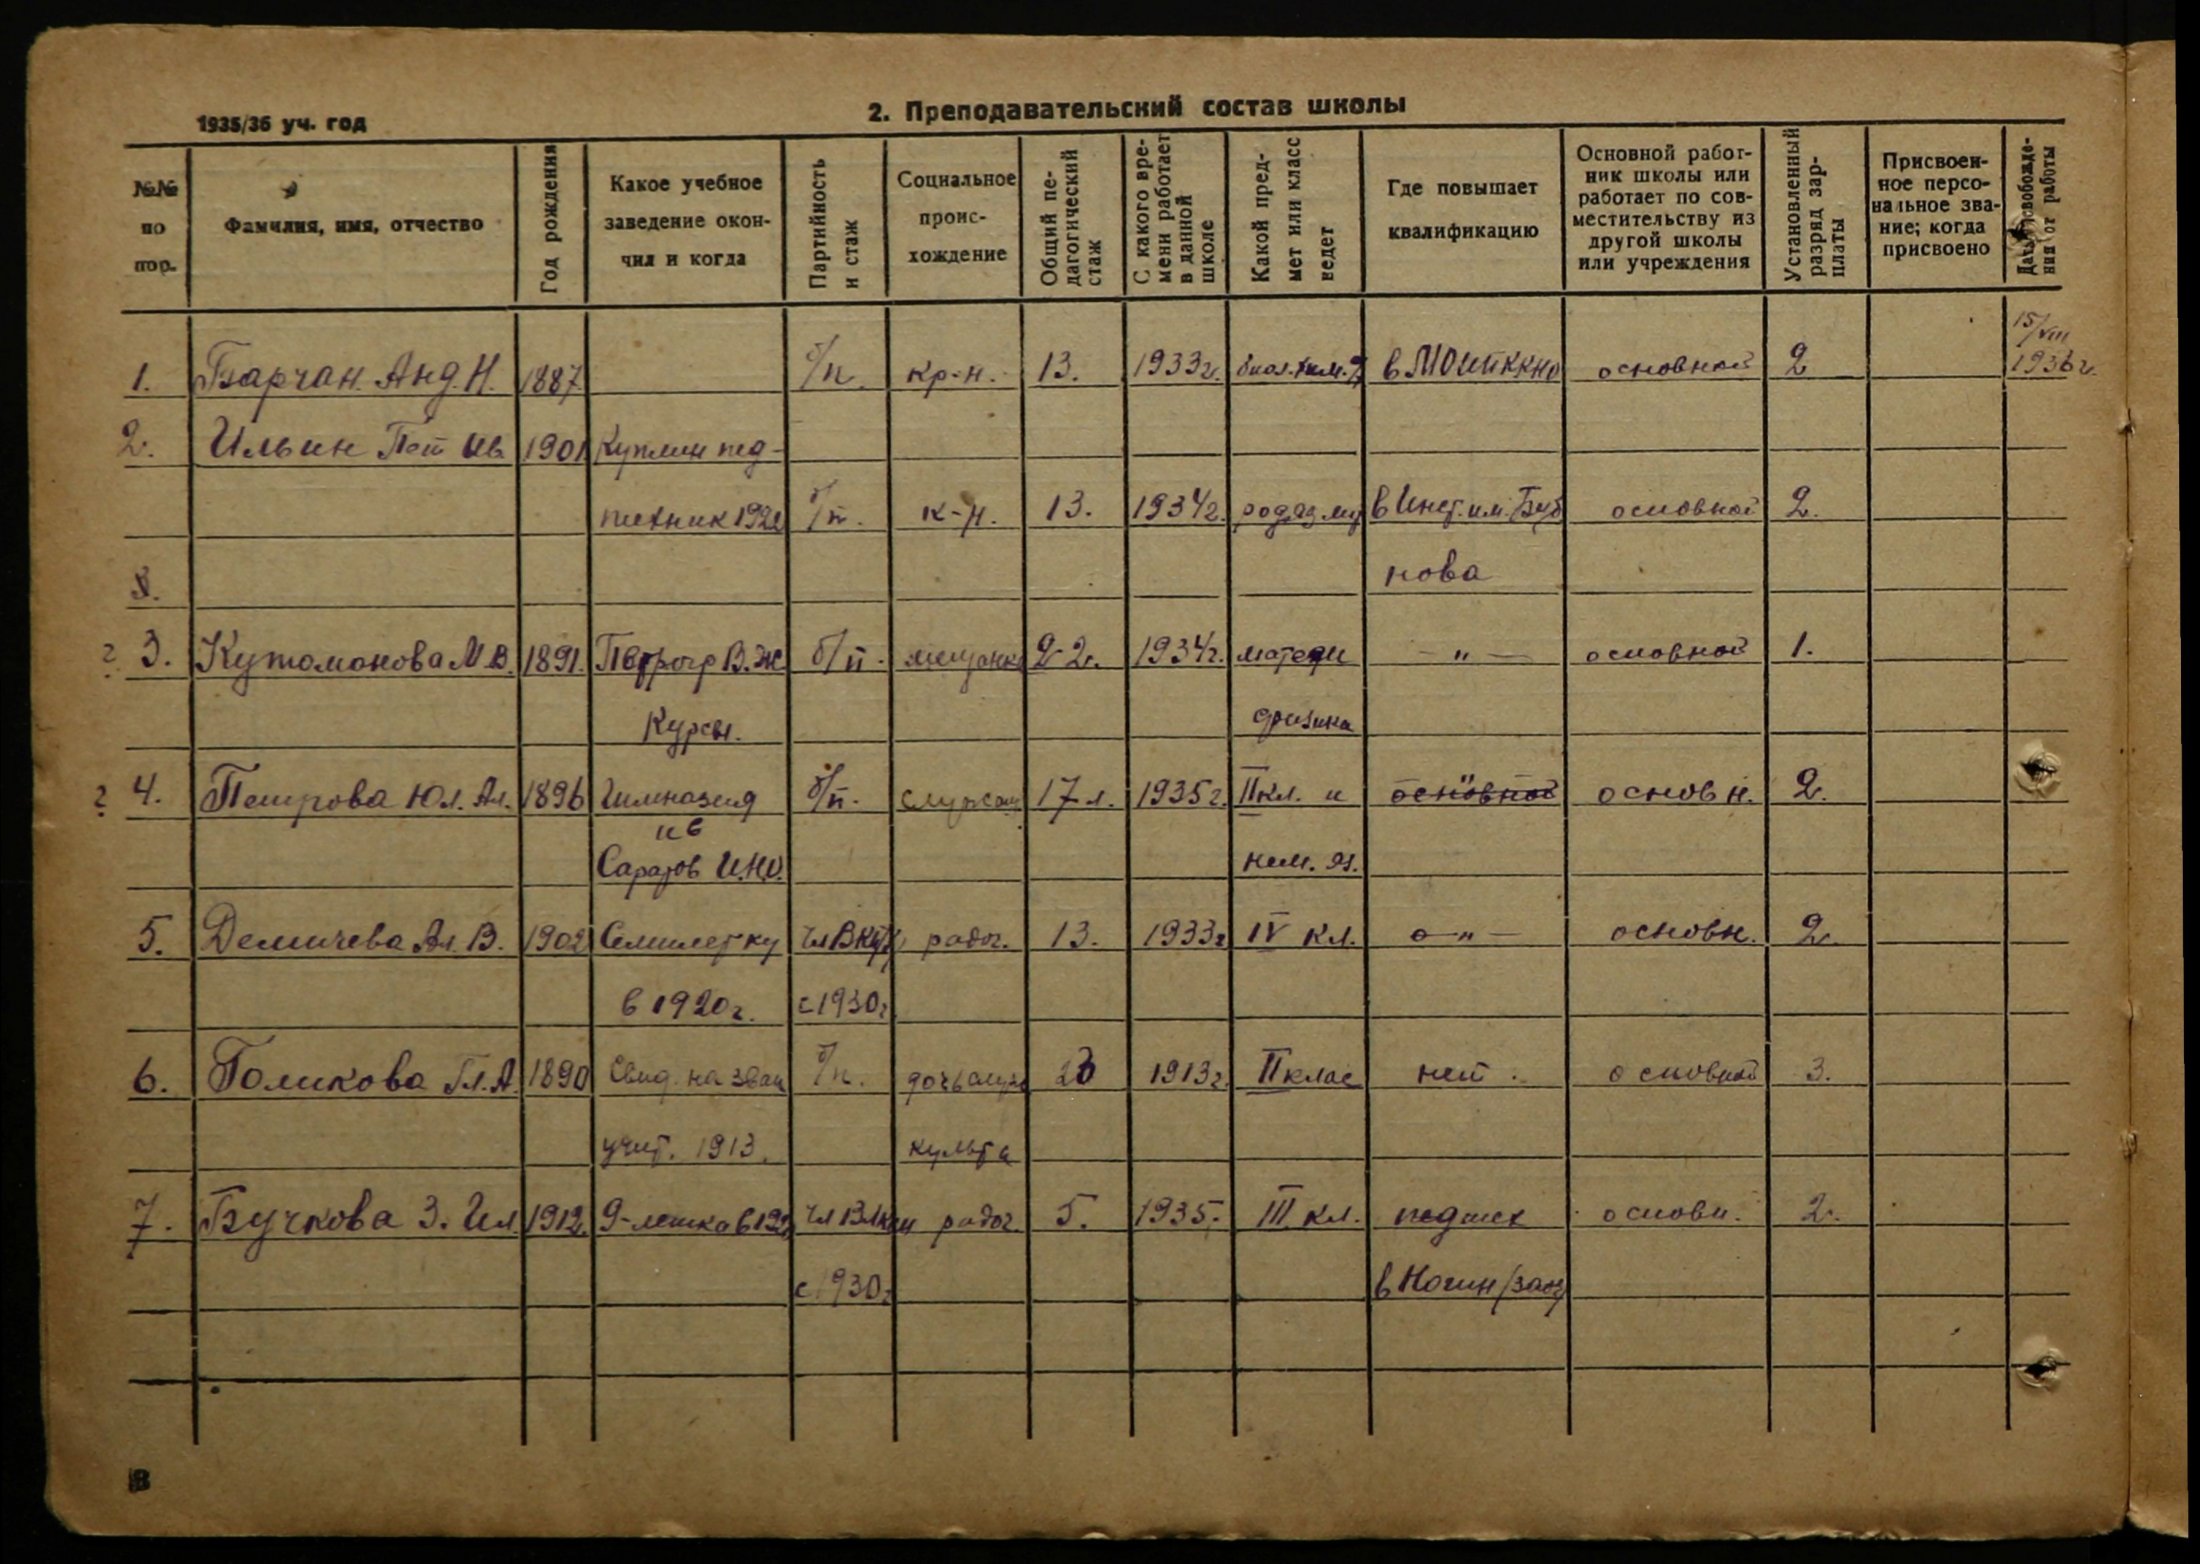 1935/36 уч. год
2. Преподавательский состав школы
№№ по пор.
Фамилия, имя, отчество
Год рождения
Какое учебное заведение окончил и когда
Партийность и стаж
Социальное происхождение
Общий педагогический стаж
С какого времени работает в данной школе
Какой предмет или класс ведет
Где повышает квалификацию
Основной работник школы или работает по совместительству из другой школы или учреждения
Установленный разряд зарплаты
Присвоенное персональное звание; когда присвоено
Дата освобождения от работы
15/VIII
1. Барчан. Анд. Н. 1887 б/п. кр-н. 13. 1933г. биол. хим. основной 2 1936г.
2. Ильин Пет Ив 1901 пед-
техник б/п. к-н. 13. 1934г. в Инст. им. Буб основной 2.
нова
3. Кутоманова М.В. 1891. В.Ж б/п. мещанка 1934г. — „ — основной 1.
Курсы. физика
4. Петрова Юл. Ал. 1896 Гимназия б/п. служащ 17 л. 1935г. II кл. и основной основн. 2.
и в
Саратов И.Н.О. нем. яз.
5. Демичева Ал. В. 1902 Семилетку рабоч. 13. 1933г IV кл. — „ — основн. 2.
в 1920г. с 1930г
6. Голикова Гл. А. 1890 Свид. на зван б/п. дочь служ 1913г. II клас нет. основной 3.
учит. 1913. культа
7. Бучкова З. Ил 1912. 9-летка в рабоч. 5. 1935. III кл. педтех основн. 2.
с 1930г в Ногин
8